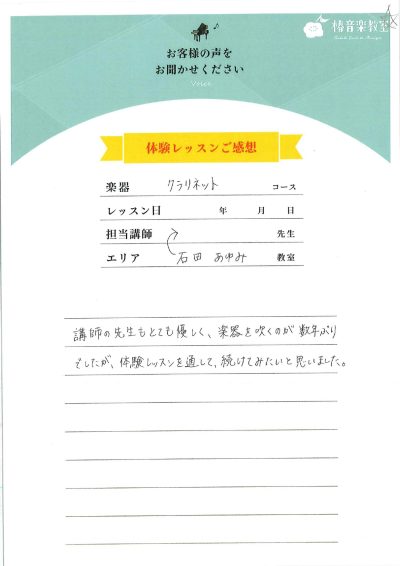 椿音楽教室
お客様の声を
お聞かせください
Voice
体験レッスンご感想
楽器 クラリネット コース
レッスン日 年 月 日
担当講師 先生
エリア 石田 あゆみ 教室
講師の先生もとても優しく、楽器を吹くのが数年ぶり
でしたが、体験レッスンを通して、続けてみたいと思いました。